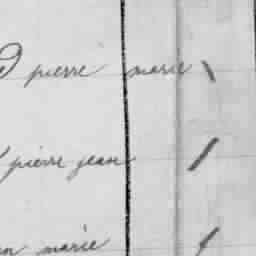 pierre marie
pierre jean
marie